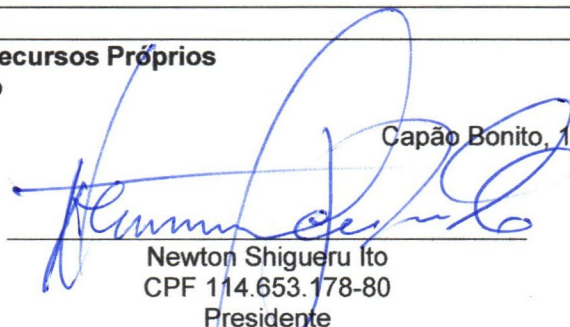 ecursos Próprios
Capão Bonito, 1
Newton Shigueru Ito
CPF 114.653.178-80
Presidente